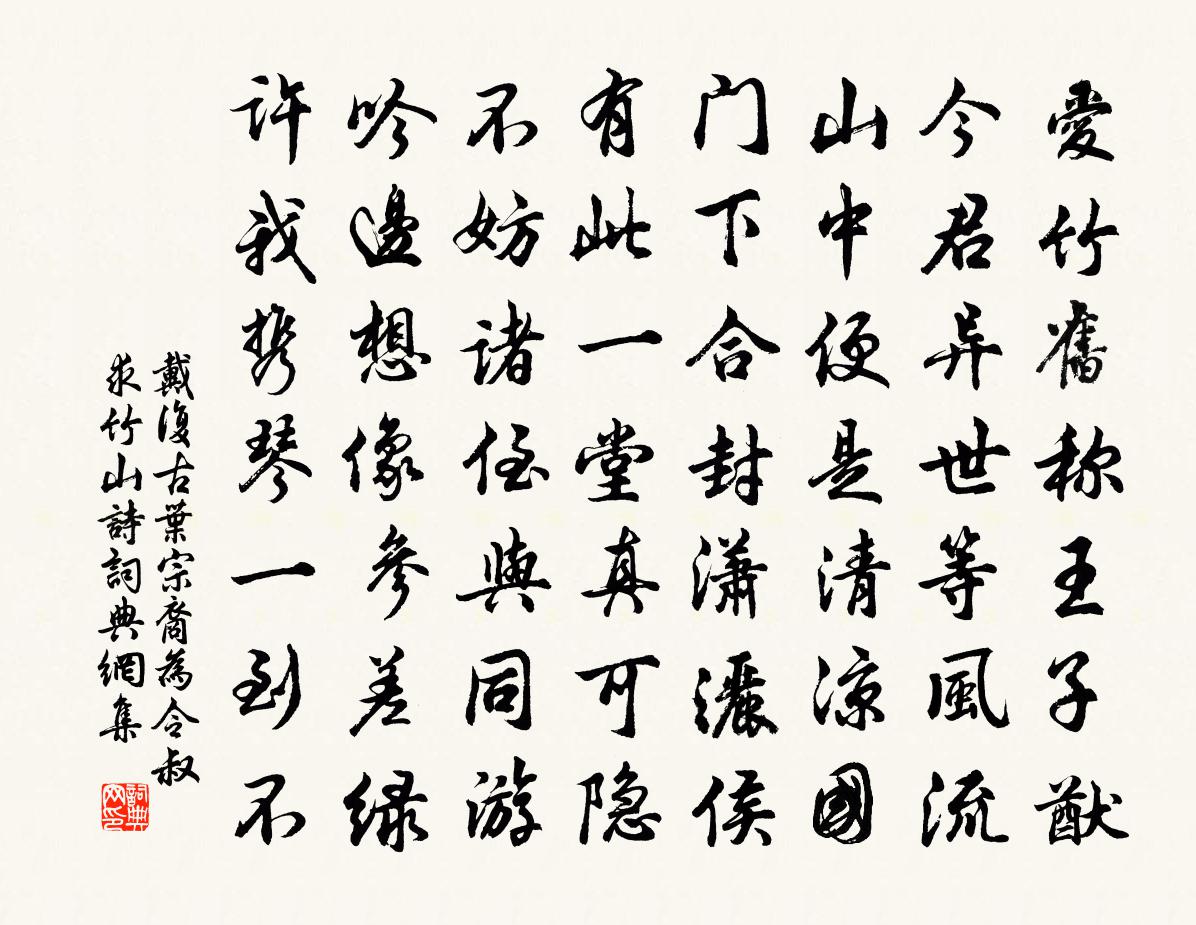 愛竹舊称王子猷
今君异世等風流
山中便是清凉國
门下合封潇灑侯
有此一堂真可隐
不妨諸侄與同游
吟邊想像參差绿
许我携琴一到不
戴復古葉宗裔為令叔
求竹山詩詞典網集
詞典
网印